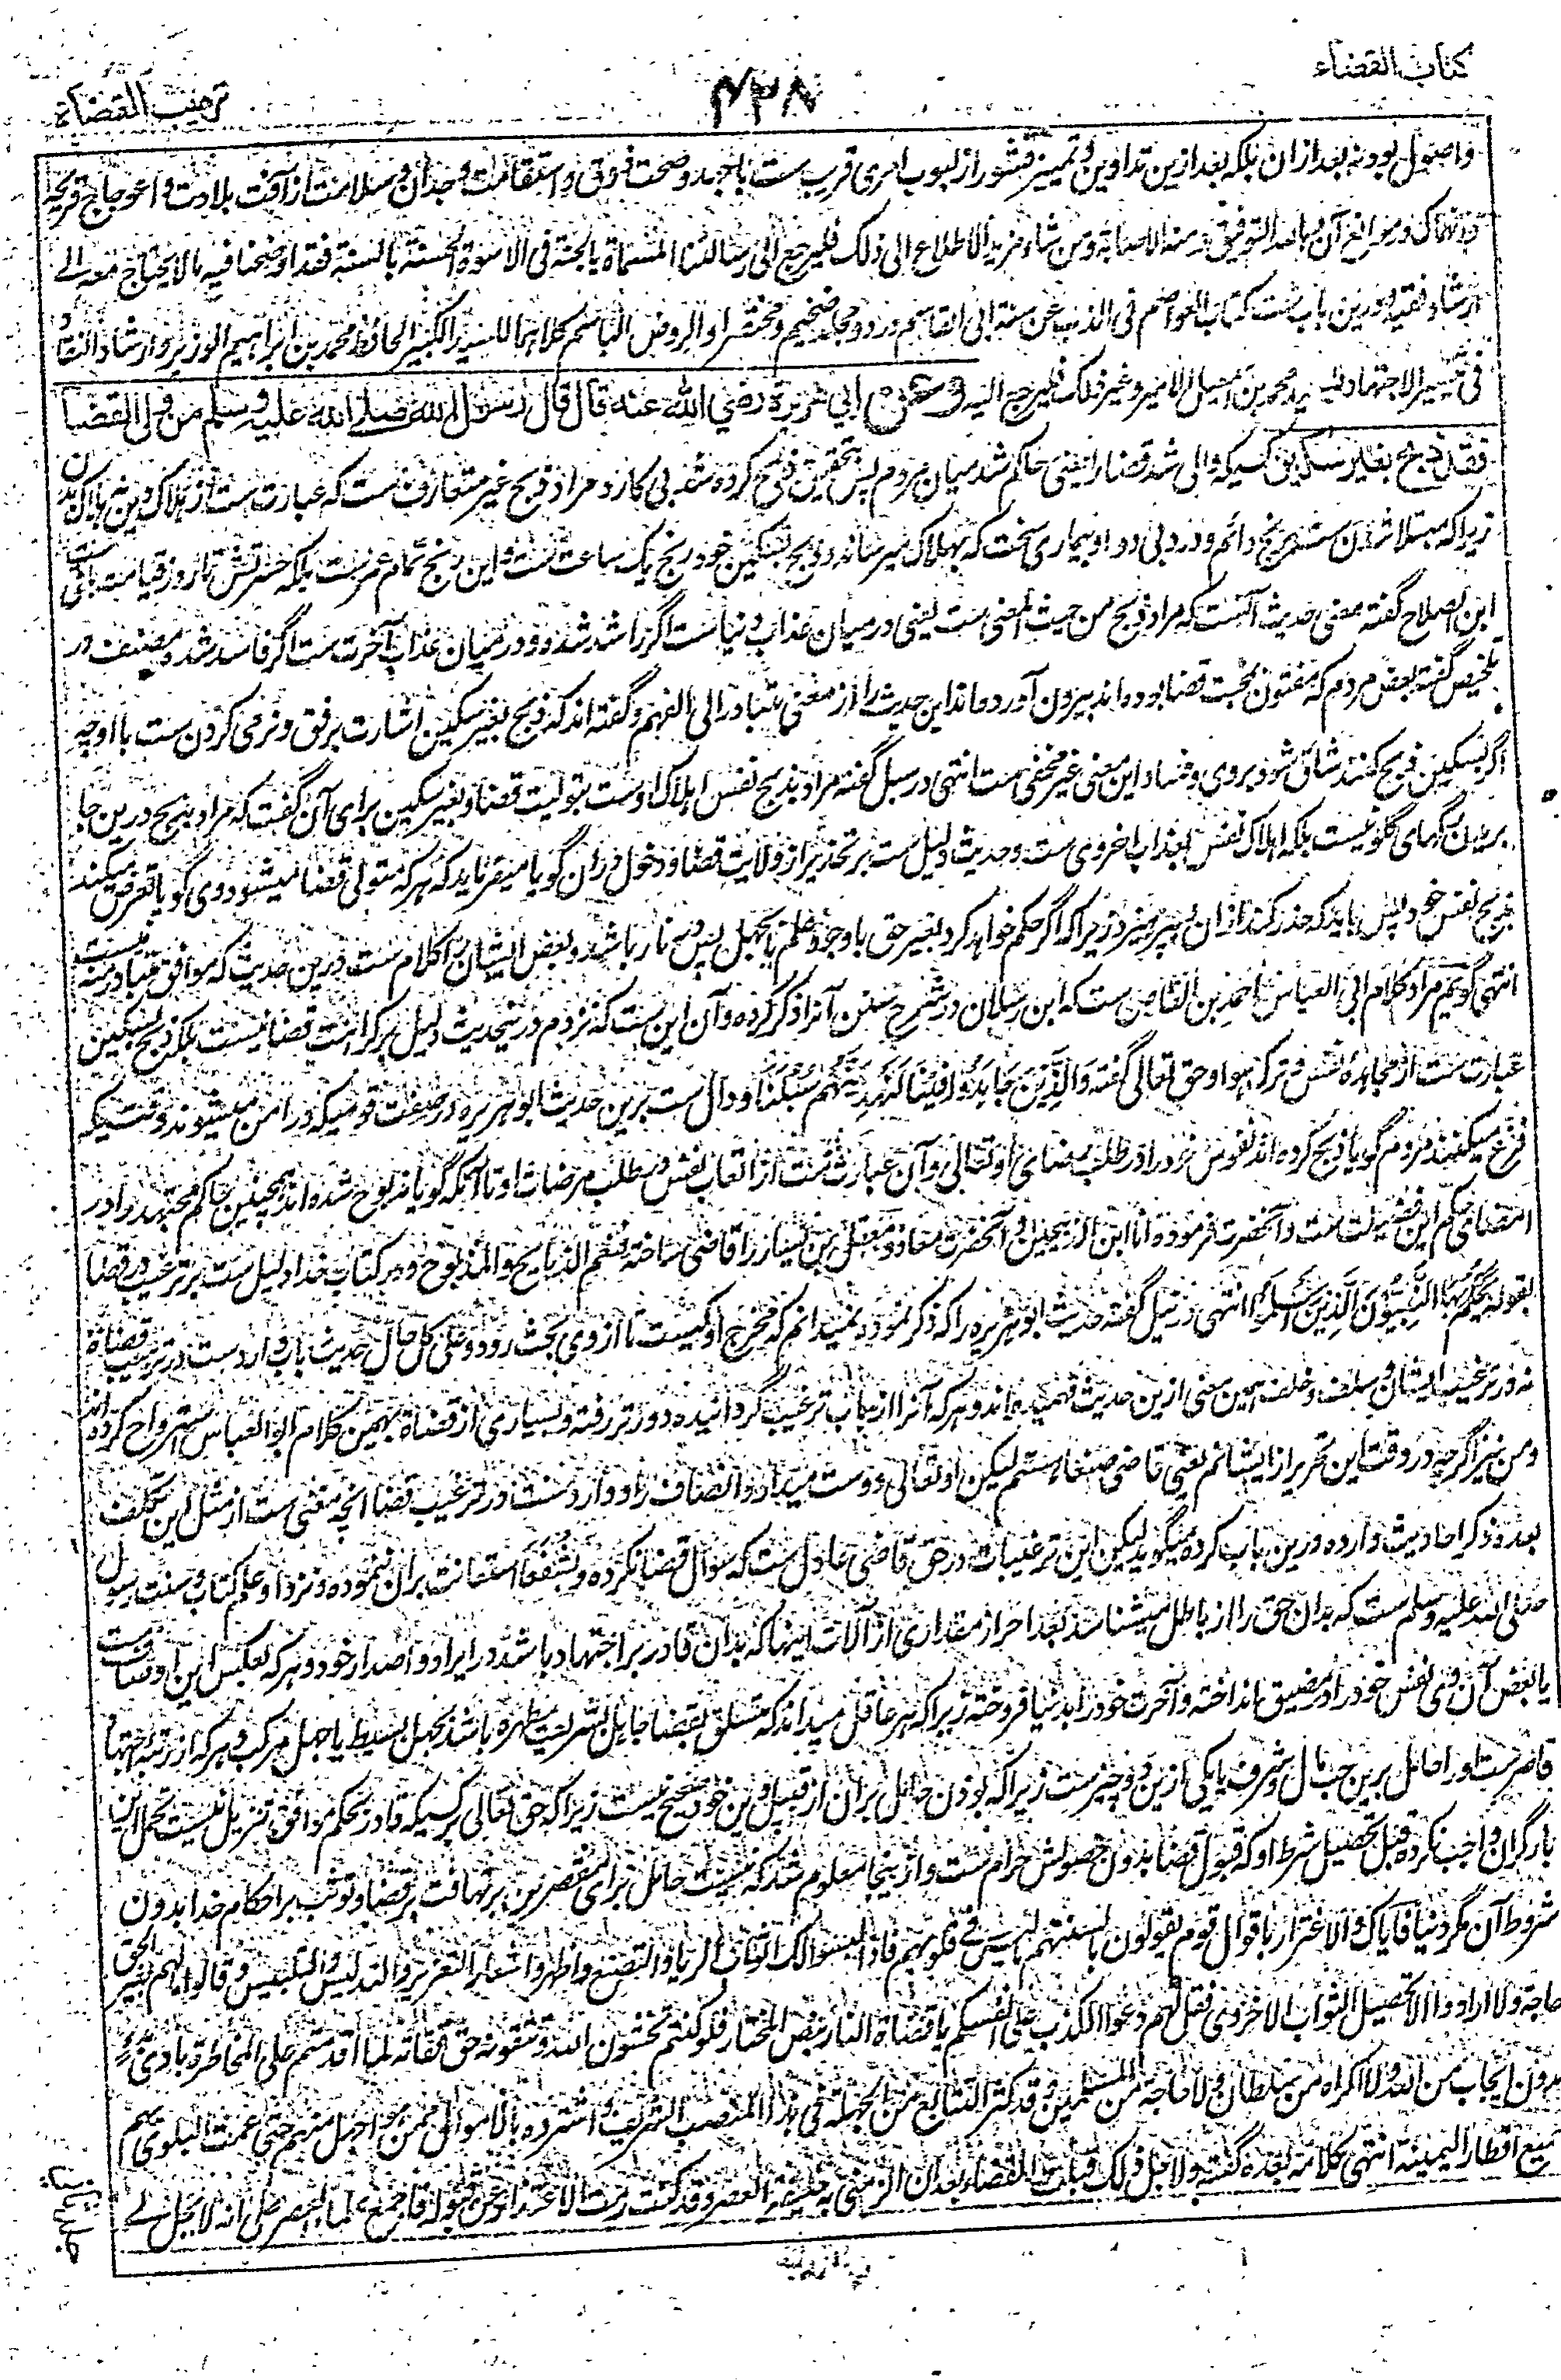 کتاب القضاء
۴۲۸
ترهیب القضاة
واصول بود نه بعد ازان بلکه بعد ازین تداوین و تمییز قشور از لبوب امری قریب ست باجهد و صحت ذوق و استقامت وجدان و سلامت از آفت بلادت و اعوجاج قریحه
و انهماک در موانع آن و بالله التوفیق و منه الاصابة ومن شاء مزید الاطلاع الی ذلک فلیرجع الی رسالتنا المسماة بالجنة فی الاسوة الحسنة بالسنة فقد اوضحنا فیه مالا یحتاج معه الی
ارشاد فقیه و درین باب ست کتاب العواصم فی الذب عن سنة ابی القاسم در دو مجلد ضخیم و مختصر او الروض الباسم کلاهما للسید الکبیر الحافظ محمد بن ابراهیم الوزیر و ارشاد النقاد
فی تیسیر الاجتهاد للسید محمد بن اسمعیل الامیر وغیر ذلک فلیرجع الیه وعن ابی هریرة رضی الله عنه قال قال رسول الله صلی الله علیه وسلم من ولی القضا
فقد ذبح بغیر سکین کسیکه والی شد قضا را یعنی حاکم شد میان مردم پس بتحقیق ذبح کرده شد بی کارد مراد ذبح غیر متعارف ست که عبارت ست از هلاک دین نه هلاک بدن
زیرا که مبتلا شدن ست برنج دائم و درد بی دوا و بیماری سخت که بهلاک میرساند و ذبح بسکین خود رنج یک ساعت ست و این رنج تمام عمرست بلکه حسرتش تا روز قیامت باقی ست
ابن الصلاح گفته معنی حدیث آنست که مراد ذبح من حیث المعنی ست یعنی در میان عذاب دنیاست اگر راشد شد و در میان عذاب آخرت ست اگر فاسد شد و مصنف در
تلخیص گفته بعض مردم که مفتون بحبت قضا بوده اند بیرون آورده اند این حدیث را از معنی متبادر الی الفهم و گفته اند که ذبح بغیر سکین اشارت برفق و نرمی کردن ست با او چه
اگر بسکین ذبح کنند شاق شود بروی و فساد این معنی غیر مخفی ست انتهی در سبل گفته مراد بذبح نفس اهلاک اوست بتولیت قضا و بغیر سکین برای آن گفت که مراد بذبح درین جا
بریدن رگهای گلو نیست بلکه اهلاک نفس بعذاب اخروی ست و حدیث دلیل ست بر تحذیر از ولایت قضا و دخول دران گویا میفرماید که هر که متولی قضا میشود وی گویا تعرض میکند
بذبح نفس خود پس باید که حذر کند ازان و بپرهیزد زیرا که اگر حکم خواهد کرد بغیر حق با وجود علم یا بجهل پس وی در نار باشد و بعض ایشان را کلام ست درین حدیث که موافق متبادر منه نیست
انتهی گویم مراد کلام ابی العباس احمد بن القاص ست که ابن رسلان در شرح سنن آنرا ذکر کرده و آن این ست که نزدم درینحدیث دلیل بر کراهت قضا نیست بلکه ذبح بسکین
عبارت ست از مجاهدهٔ نفس و ترک هوا و حق تعالی گفته وَالَّذِینَ جَاهَدُوا فِینَا لَنَهْدِیَنَّهُمْ سُبُلَنَا و دال ست برین حدیث ابو هریره در صفت قومیکه در امن میشوند وقتیکه
فزع میکنند مردم گویا ذبح کرده اند نفوس خود را در طلب رضای او تعالی و آن عبارت ست از اتعاب نفس در طلب مرضات او تا آنکه گویا مذبوح شده اند همچنین حاکم مجتهد را در
امضای حکم این فضیلت ست و آنحضرت فرموده انا ابن الذبیحین و آنحضرت معاذ و معقل بن یسار را قاضی ساخته فنعم الذابح والمذبوح و در کتاب خدا دلیل ست بر ترغیب در قضا
بقوله یَحْکُمُ بِهَا النَّبِیُّونَ الَّذِینَ أَسْلَمُوا انتهی در نیل گفته حدیث ابو هریره را که ذکر نموده نمیدانم که مخرج او کیست تا از وی بحث رود و علی کل حال حدیث باب وارد ست در ترهیب قضاة
نه در ترغیب ایشان و سلف و خلف همین معنی ازین حدیث فهمیده اند و هر که آنرا از باب ترغیب گردانیده دورتر رفته و بسیاری از قضاة بهمین کلام ابو العباس استرواح کرده اند
و من نیز اگرچه در وقت این تحریر از ایشانم یعنی قاضی صنعاء هستم لیکن او تعالی دوست میدارد انصاف را و وارد ست در ترغیب قضا انچه مغنی ست از مثل این تکلف
بعده ذکر احادیث وارده درین باب کرده میگوید لیکن این ترغیبات در حق قاضی عادل ست که سوال قضا نکرده و بشفعا استعانت بران ننموده و نزد او علم کتاب و سنت رسول
صلی الله علیه وسلم ست که بدان حق را از باطل میشناسد بعد احراز مقداری از آلات اینها که بدان قادر بر اجتهاد باشد در ایراد و اصدار خود و هر که بعکس این اوصاف ست
یا بعض آن وی نفس خود را در مضیق انداخته و آخرت خود را بدنیا فروخته زیرا که هر عاقل میداند که متسلق بقضا جاهل بشریعت مطهره باشد بجهل بسیط یا جهل مرکب و هر که از رتبهٔ اجتهاد
قاصرست او را حامل برین حب مال و شرف یا یکی ازین دو چیزست زیرا که بودن حامل بران از قبیل دین خود صحیح نیست زیرا که حق تعالی بر کسیکه قادر بحکم موافق تنزیل نیست تحمل این
بار گران واجب نکرده قبل تحصیل شرط او که قبول قضا بدون حصولش حرام ست و ازینجا معلوم شد که نیست حامل برای مقصرین بر تهافت بر قضا و توثب بر احکام خدا بدون
شروط آن مگر دنیا فایاک والاغترار باقوال قوم یقولون بالسنتهم ما لیس فی قلوبهم فاذا لبسوا لک اثواب الریا والتصنع واظهروا شعار التغریر والتدلیس والتلبیس وقالوا ما لهم بغیر الحق
حاجة ولا ارادوا الا تحصیل الثواب الاخروی فقل لهم دعوا الکذب علی انفسکم یا قضاة النار بنص المختار فلو کنتم تخشون الله وتتقونه حق تقاته لما اقدمتم علی المخاطرة بادی بدء
بدون ایجاب من الله ولا اکراه من سلطان ولا حاجة من المسلمین وقد کثر التتابع من الجهلة فی هذا المنصب الشریف واشتروه بالاموال ممن هو اجهل منهم حتی عمت البلوی بهم
جمیع اقطار الیمنیة انتهی کلامه بعده گفته ولاجل ذلک قبلت القضاء بعد ان الزمنی به خلیفة العصر وقد کنت رمت الاعتذار عن قبوله فاجمع علماء العصر علی انه لا یحل لی